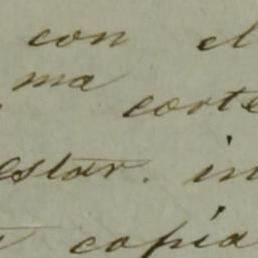 con el
ma corte
estar. in
copia